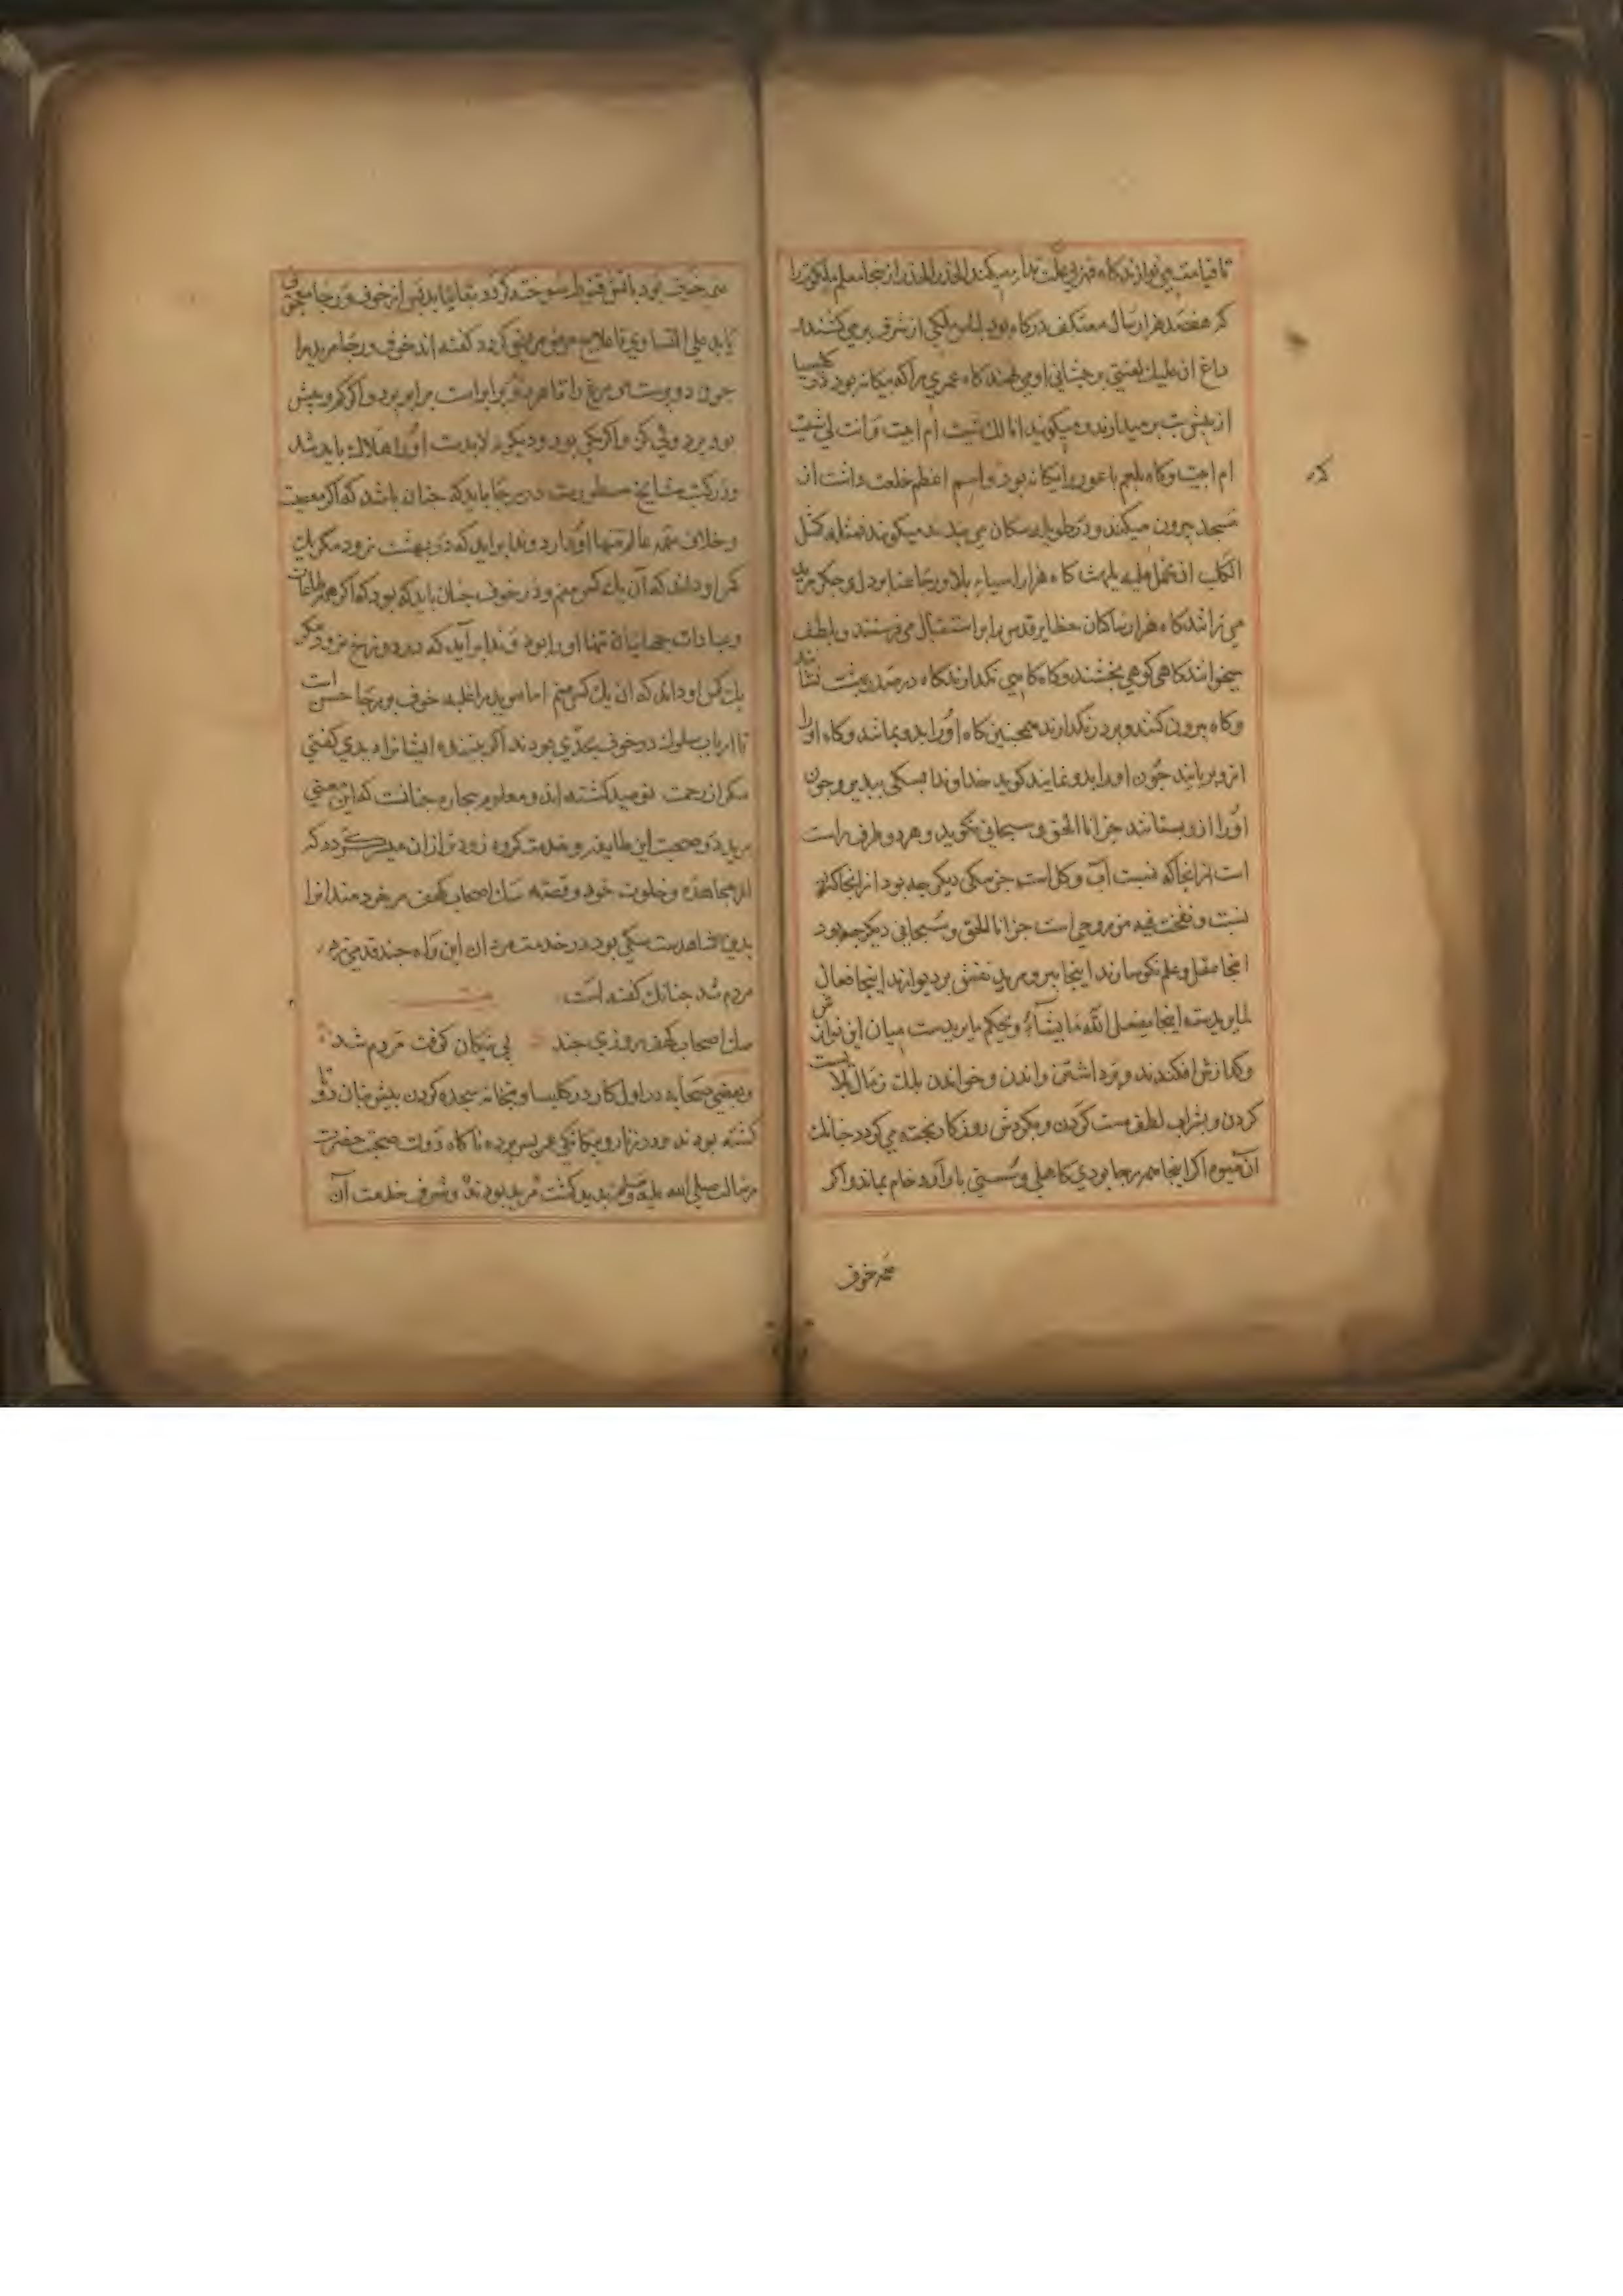 تا قیامت می نوازند کاه قهر بی علت ندا میکند الحذر الحذر از نجا معلم ملکوت را
که هفصد هزار سال معتکف درکاه بود لباس ملکی از شرق برمی کشند
داغ ان علیک لعنتی بر پیشانی او می نهند کاه عمری را که بیکانه بود در کلیسیا
از پیش بت بر میدارند و میکویند انا لک شیت ام ابیت و انت لی شیت
ام ابیت و کاه بلعم باعور را یکانه بود و اسم اعظم خلعت داشت از
مسجد بیرون میکنند و در طویله سکان می بندند میکویند فمثله کمثل
الکلب ان تحمل علیه یلهث کاه هزار اسیاء بلا و رجا عنا بر دل و جکر مرید
می رانند کاه هزار ساکان حظایر قدس را بر استقبال می فرستند و بلطف
میخوانند کاهی کوهی بخشند و کاه کاهی نکدارند کاه در صدر بیشت نشانند
و کاه بیرون کنند و بر در نکدارند همچنین کاه او را بدو بمانند و کاه او را
ازو بربایند چون او را بدو نمایند کوید خداوندا بسکی بپذیر و چون
او را ازو بستانند جز انا الحق و سبحانی نکوید و هر دو طرف راست
است از انجا که نسبت آب و کل است جز سکی دیکر چه بود از انجا که
نسبت و نفخت فیه من روحی است جز انا الحق و سبحانی دیکر چه بود
انجا عقل و علم نکوسارند اینجا پیر و مرید نقش بر دیوارند اینجا فعال
لما یریدست اینجا یفعل الله ما یشاء و یحکم ما یریدست میان این نوازش
و کدازش افکندند و برداشتن و راندن و خواندن بلک زمال بلاست
کردن و بشراب لطف مست کردن و بکردش روزکار پخته می کردد چنانک
آن میوه اکر اینجا همه رجا بودی کاهلی و سستی بار آرد خام بماند و اکر
همه خوف
همه خوف بود باتش قنوط سوخته کردد بغایتا بد پس از خوف و رجا معجونی
باید علی التساوی تا علاج مرض مرید کردد کفته اند خوف و رجا مرید را
چون دو پرست مر مرغ را تا هر دو برابر است برابر پرد و اکر کم و بیش
بود پرد ولی کژ و اکر یکی بود و دیکر نه لابدست او را هلاک باید شد
و در کتب مشایخ مسطورست در رجا باید که چنان باشد که اکر معصیت
و خلاف همه عالم تنها او دارد و ندا براید که در بهشت نرود مکر یک
کس او داند که آن یک کس منم و در خوف چنان باید که بود که اکر همه طاعات
و عبادات جهانیان تنها او را بود و ندا برآید که در دوزخ نرود مکر
یک کس او داند که ان یک کس منم اما مرید را غلبه خوف بر رجا احسن است
تا ارباب سلوک در خوف بحدی بودند اکر بیننده ایشانرا دیدی کفتی
مکر از رحمت نومید کشته اند و معلوم بیچاره چنانست که این معنی
مرید در صحبت این طایفه و خدمت کروه زودتر ازان میسر کردد که
از مجاهده و خلوت خود و قصه سک اصحاب کهف مر خردمندانرا
بدین شاهدست سکی بود در خدمت مردان این راه چند قدمی زد
مردم شد چنانک کفته است بیت
سک اصحاب کهف روزی چند پی نیکان کرفت مردم شد
و بعضی صحابه در اول کار در کلیسا و بتخانه سجده کردن پیش بتان دوتا
کشته بودند و در زنار و بیکانکی عمر بسر برده ناکاه دولت صحبت حضرت
رسالت صلی الله علیه و سلم پدید کشت مرید بودند و شرف خدمت آن